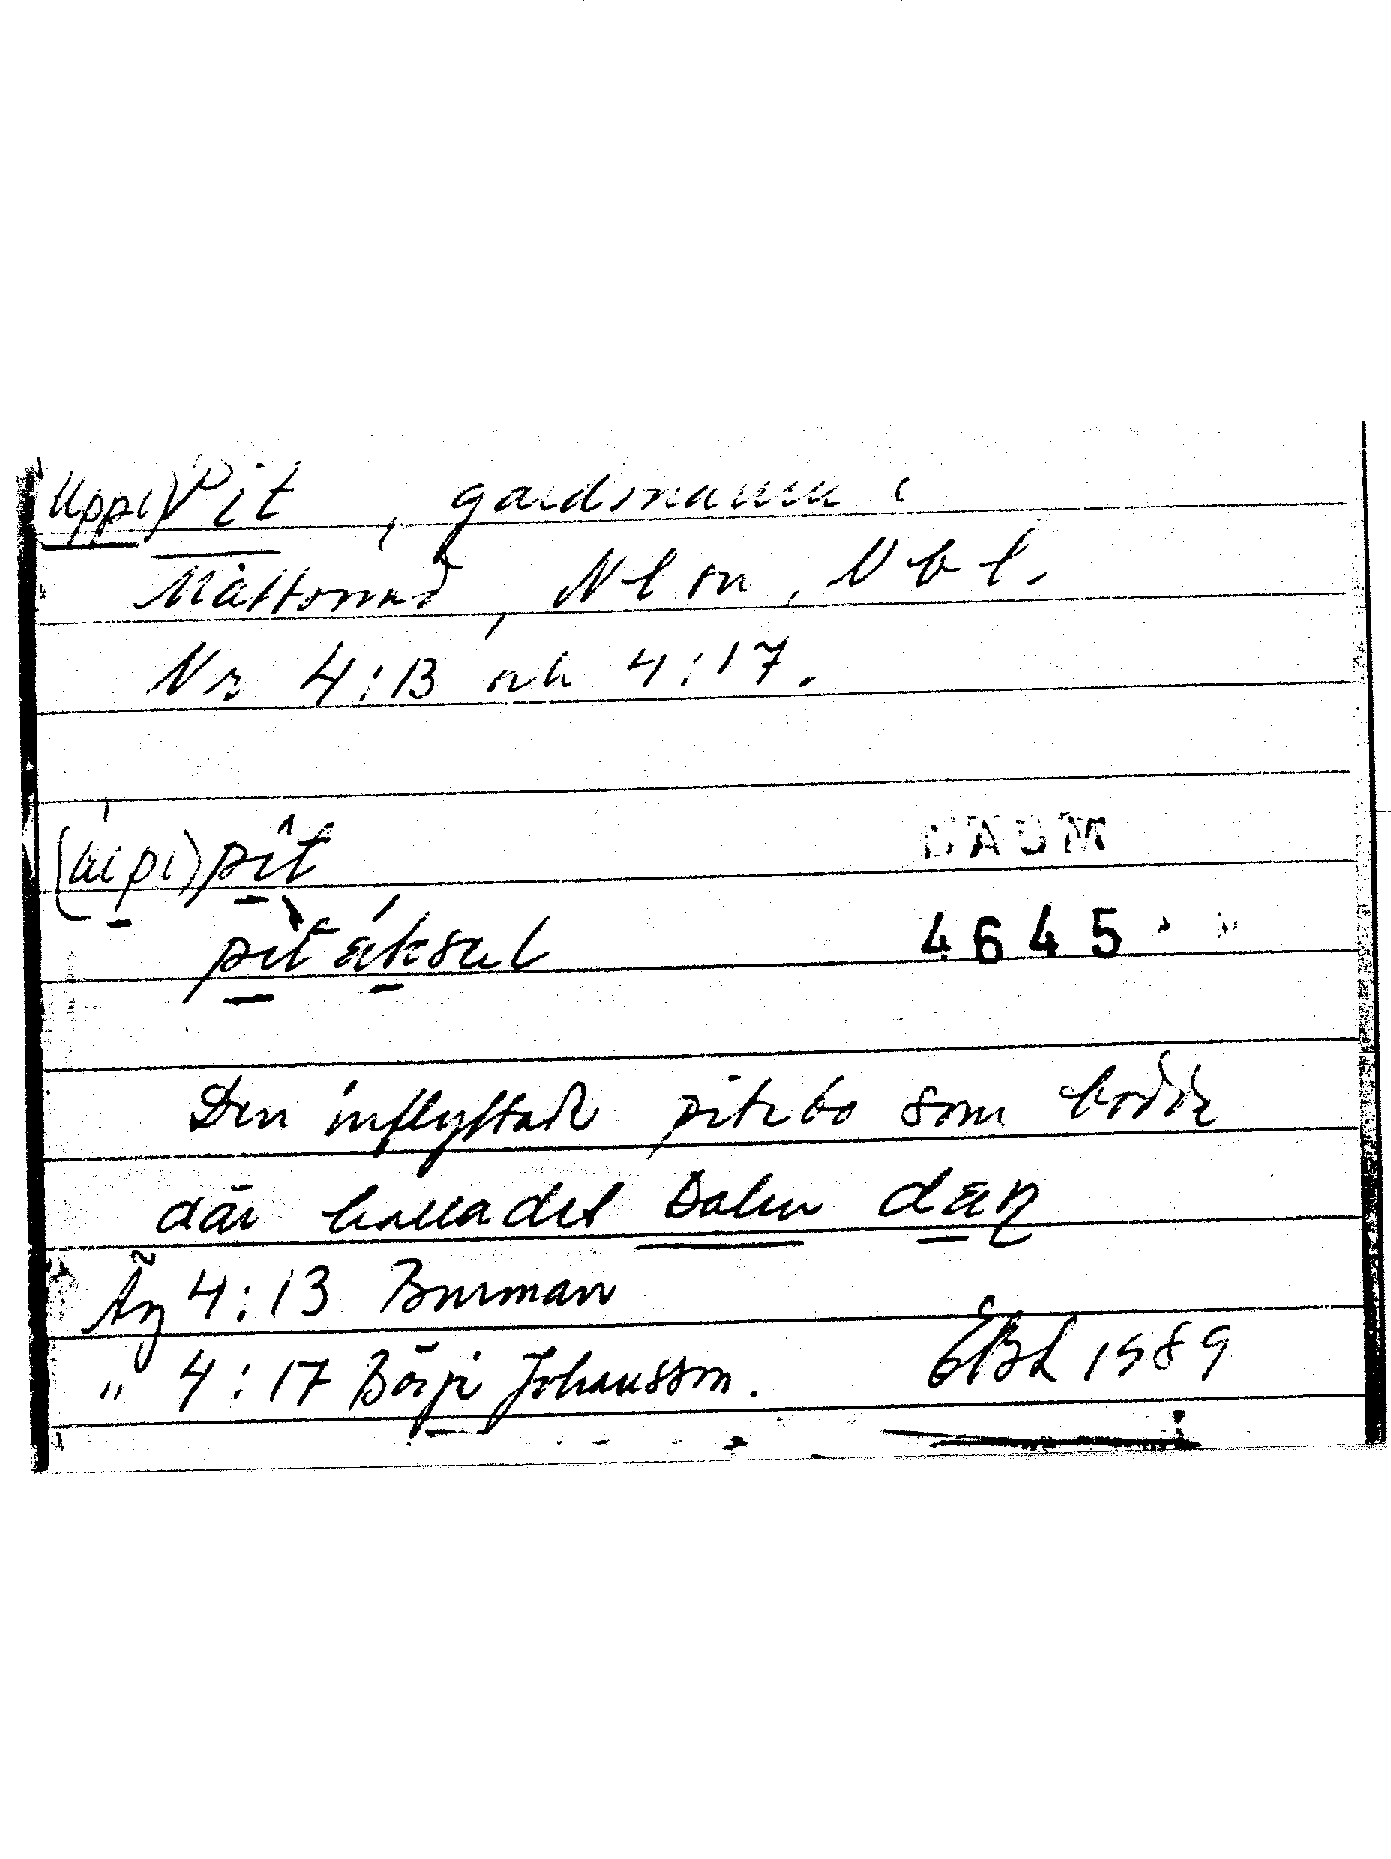 (Uppi) Pit, gårdsnamn i
Måttsund, Nl sn, Nbl.
Nr 4:13 och 4:17.
(úpi) pît
pìt áksel
DAUM
4645
Den inflyttade pitebo som bodde
där kallades Dalen
Äg 4:13 Burman
" 4:17 Börje Johansson.
EBL 1989